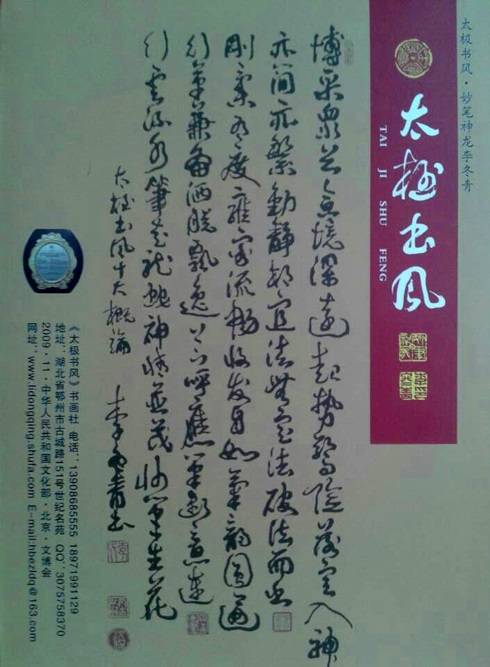 太极书风·妙笔神龙李冬青
太极书风
TAI JI SHU FENG
博采众长意境深远起势惊险落定入神
亦简亦繁動静相宜法无定法破法而出
刚柔有度流畅收发自如氣韵圆通
行草兼备洒脱飘逸上下呼應笔断意连
行云流水筆走龙蛇神情并茂妙笔生花
太极书风十大概論 李冬青书
《太极书风》书画社 电话：13908685555 18971991129
地址：湖北省鄂州市古城路151号世纪名苑 QQ：3075758370
2009·11·中华人民共和国文化部·北京·文博会
网址：www.lidongqing.shufa.com E-mail:hbezldq@163.com